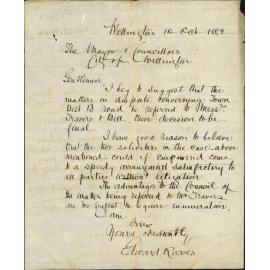 Wellington 10 Oct. 1882
The Mayor & Councillors
City of Wellington
Gentlemen
I beg to suggest that the
matters in dispute concerning Town
Belt Road be referred to Messrs
Travers & Bell, their decision to be
final.
I have good reason to believe
that the two solicitors in the case above
mentioned could if empowered come
to a speedy arrangement satisfactory to
all parties without litigation.
The advantage to the Council of
the matter being referred to Mr Travers
I am
Yours obediently
Edward Reeves